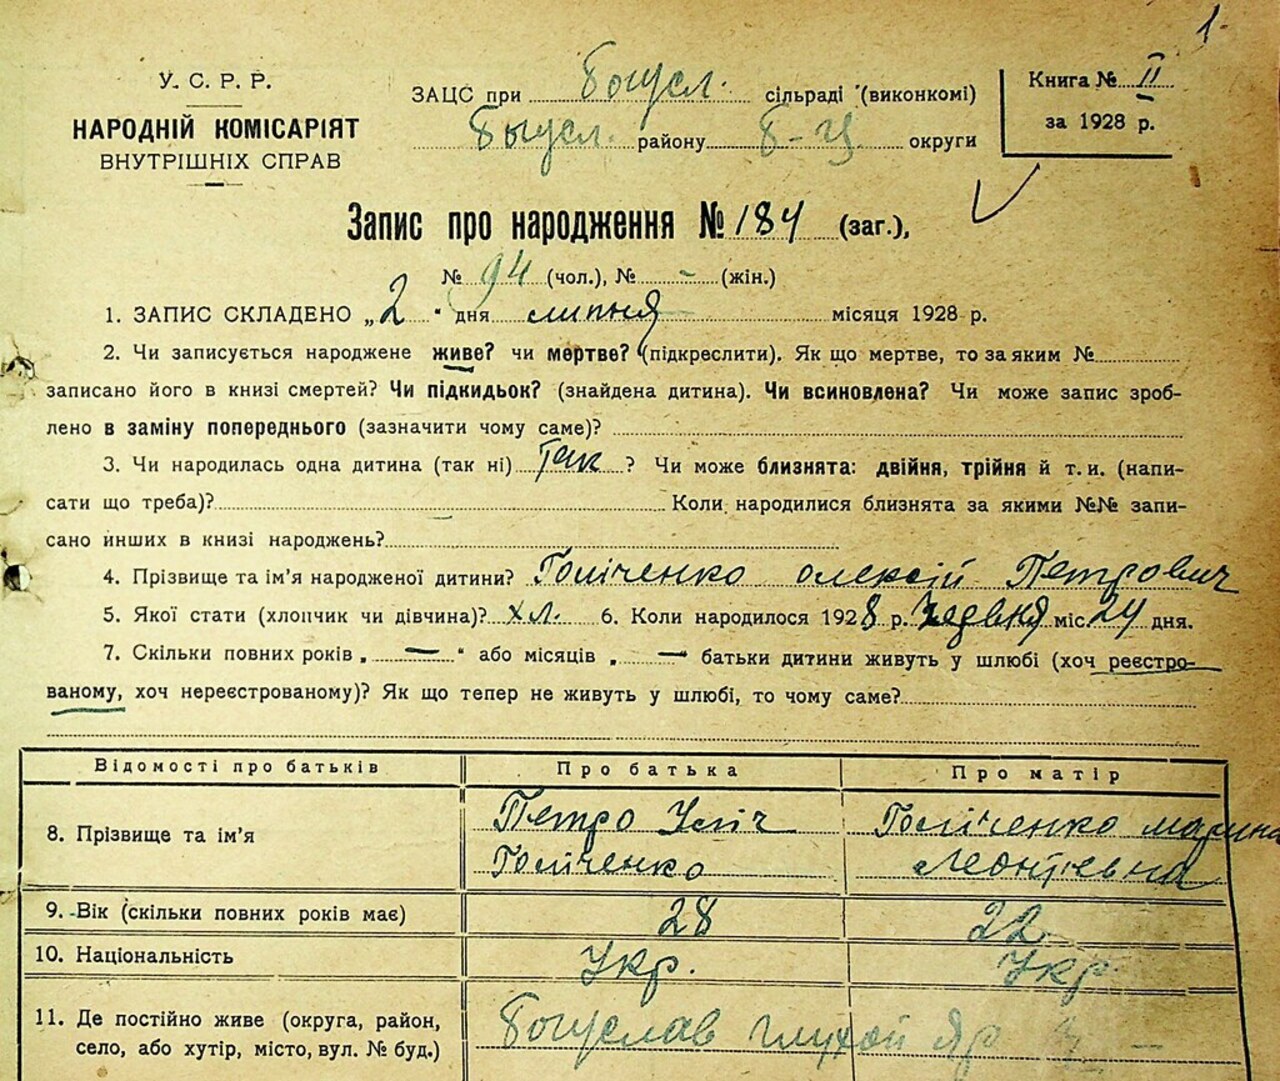 1.
У. С. Р. Р.
НАРОДНІЙ КОМІСАРІЯТ
ВНУТРІШНІХ СПРАВ
ЗАЦС при Богусл. сільраді (виконкомі)
Богусл. району Б-Ц округи
Книга № II
за 1928 р.
Запис про народження № 184 (заг.),
№ 94 (чол.), № - (жін.)
1. ЗАПИС СКЛАДЕНО „2" дня липня місяця 1928 р.
2. Чи записується народжене живе? чи мертве? (підкреслити). Як що мертве, то за яким №
записано його в книзі смертей? Чи підкидьок? (знайдена дитина). Чи всиновлена? Чи може запис зроб-
лено в заміну попереднього (зазначити чому саме)?
3. Чи народилась одна дитина (так ні) Так ? Чи може близнята: двійня, трійня й т. и. (напи-
сати що треба)? Коли народилися близнята за якими №№ запи-
сано инших в книзі народжень?
4. Прізвище та ім'я народженої дитини? Голіченко Олексій Петрович
5. Якої стати (хлопчик чи дівчина)? хл. 6. Коли народилося 1928 р. Червня міс. 24 дня.
7. Скільки повних років „ — " або місяців „ — " батьки дитини живуть у шлюбі (хоч реєстро-
ваному, хоч нереєстрованому)? Як що тепер не живуть у шлюбі, то чому саме?
Відомості про батьків Про батька Про матір
8. Прізвище та ім'я Петро Голіченко Голіченко Марина Леонтієвна
9. Вік (скільки повних років має) 28 22
10. Національність Укр. Укр.
11. Де постійно живе (округа, район,
село, або хутір, місто, вул. № буд.) Богуслав Глухой Яр